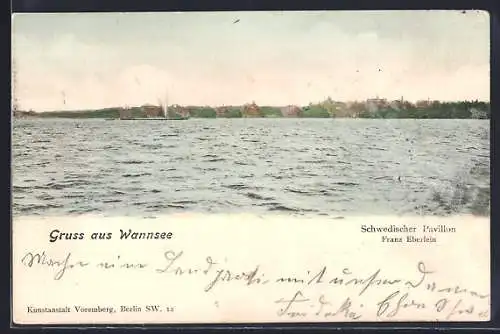 Gruss aus Wannsee
Schwedischer Pavillon
Franz Eberlein
Mache eine Landpartie mit unseren Damen
Kunstanstalt Voremberg, Berlin SW. 12